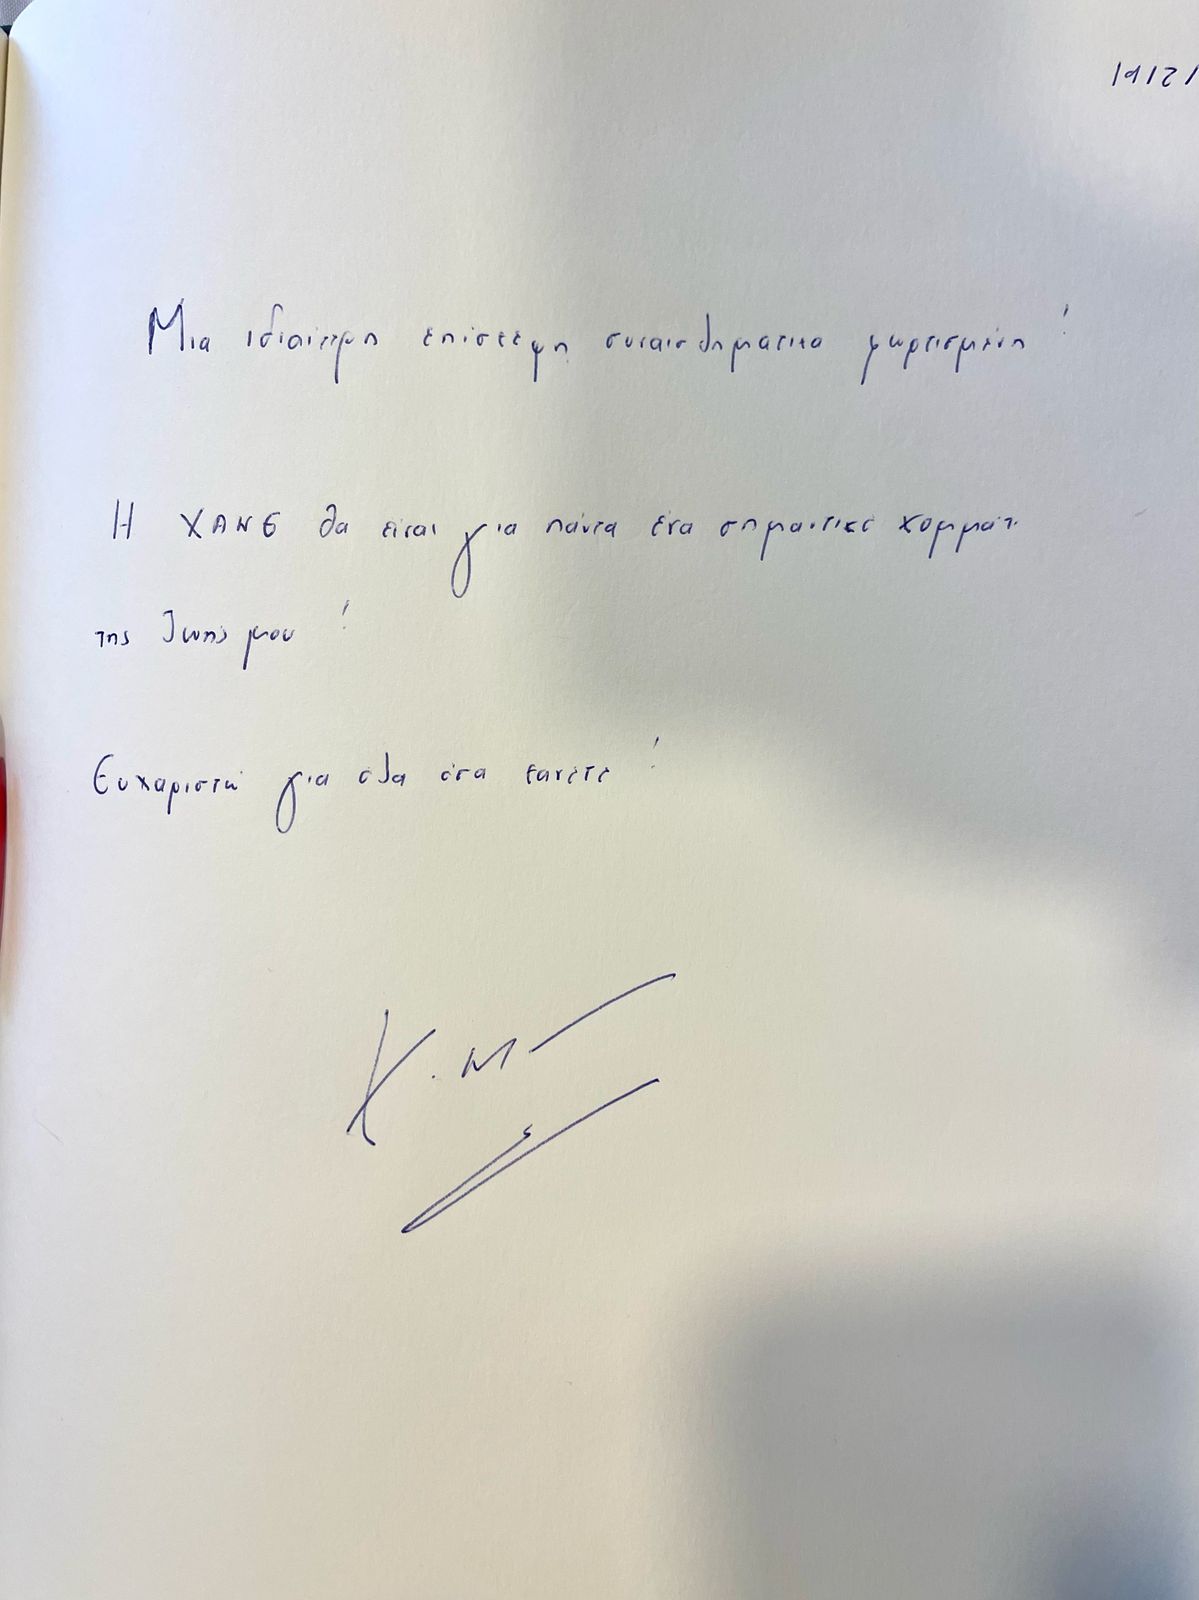 Μια ιδιαίτερη επίσκεψη συναισθηματικα φορτισμένη!
Η ΧΑΝΘ θα είναι για πάντα ένα σημαντικό κομμάτι
της ζωής μου!
Ευχαριστώ για όλα όσα κανετε!